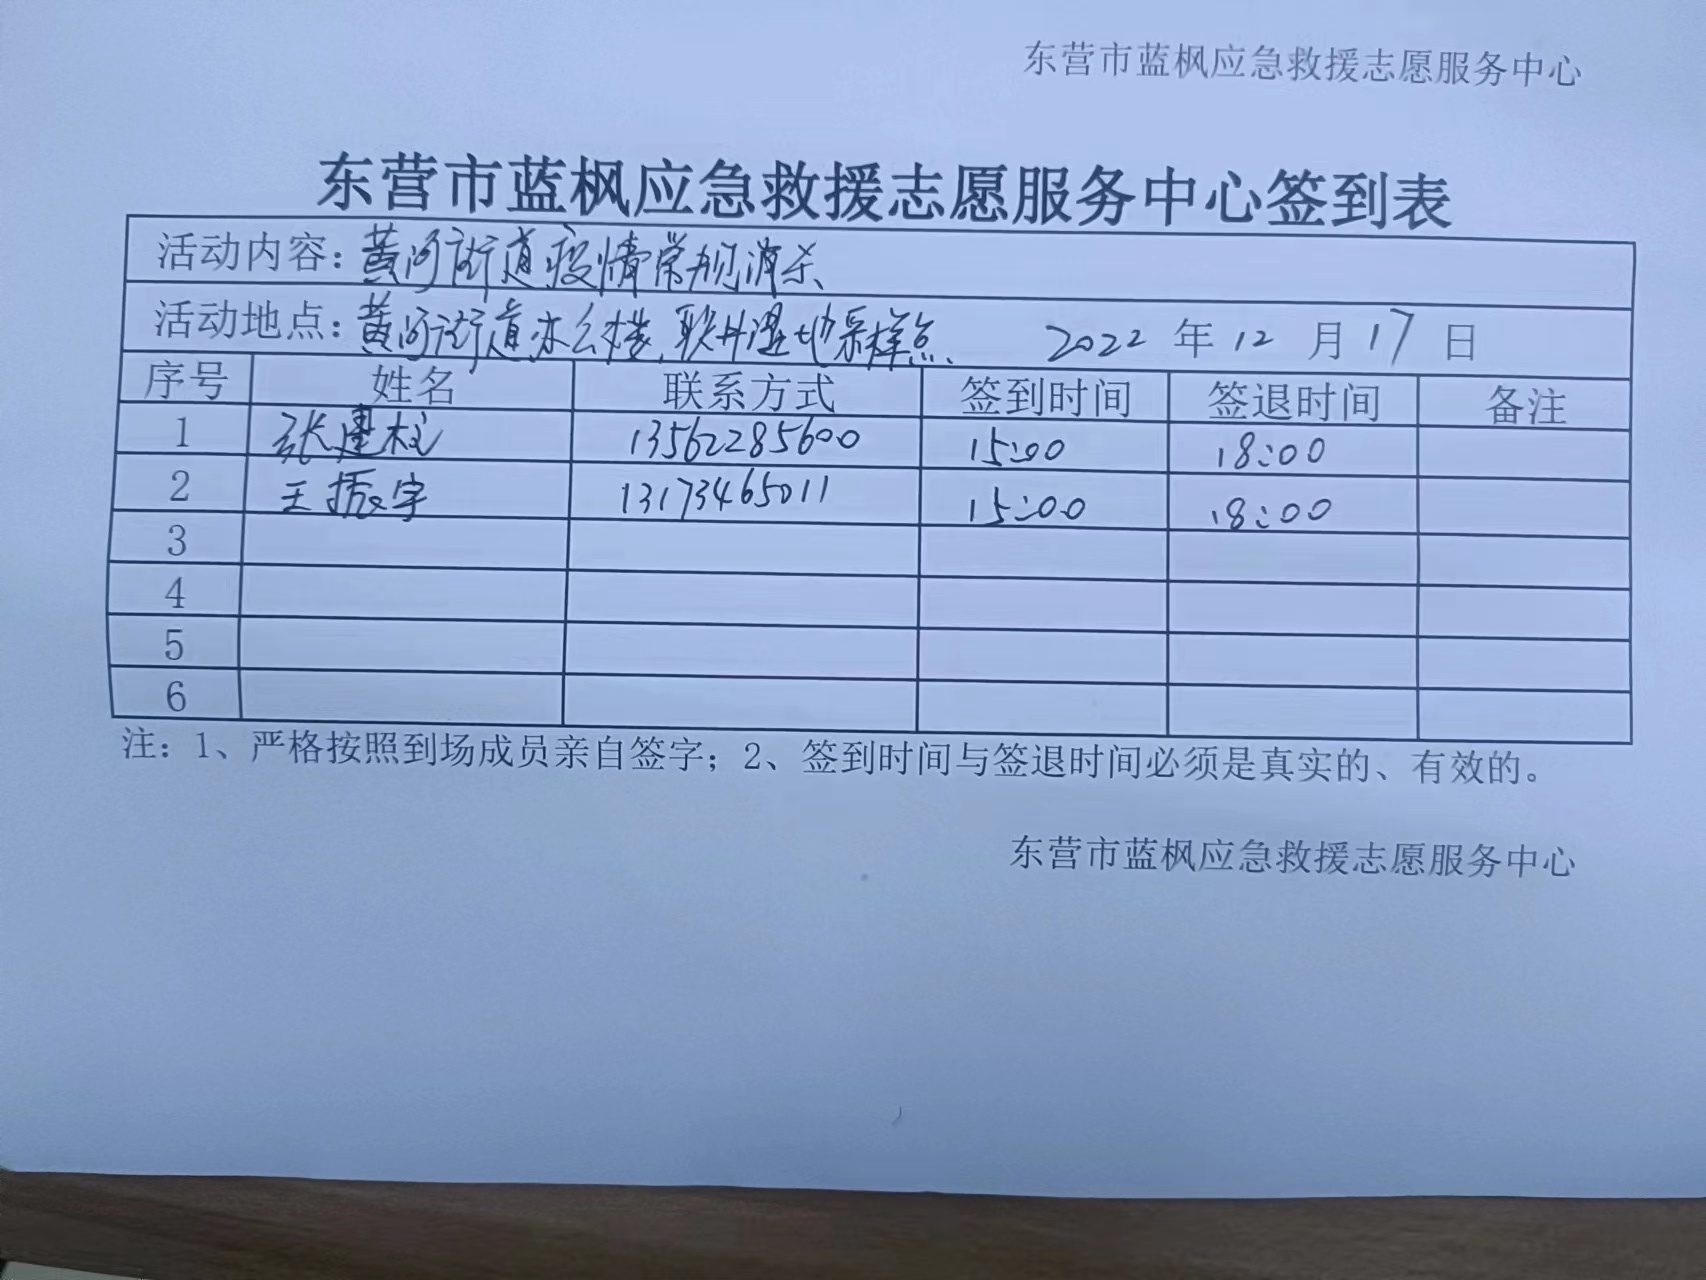 东营市蓝枫应急救援志愿服务中心
东营市蓝枫应急救援志愿服务中心签到表
活动内容：黄河街道疫情常规消杀
活动地点：黄河街道办公楼、耿井湿地采样点 2022 年 12 月 17 日
序号 姓名 联系方式 签到时间 签退时间 备注
1 张建柱 13562285600 15:00 18:00
2 王振宇 13173465011 15:00 18:00
3
4
5
6
注：1、严格按照到场成员亲自签字；2、签到时间与签退时间必须是真实的、有效的。
东营市蓝枫应急救援志愿服务中心